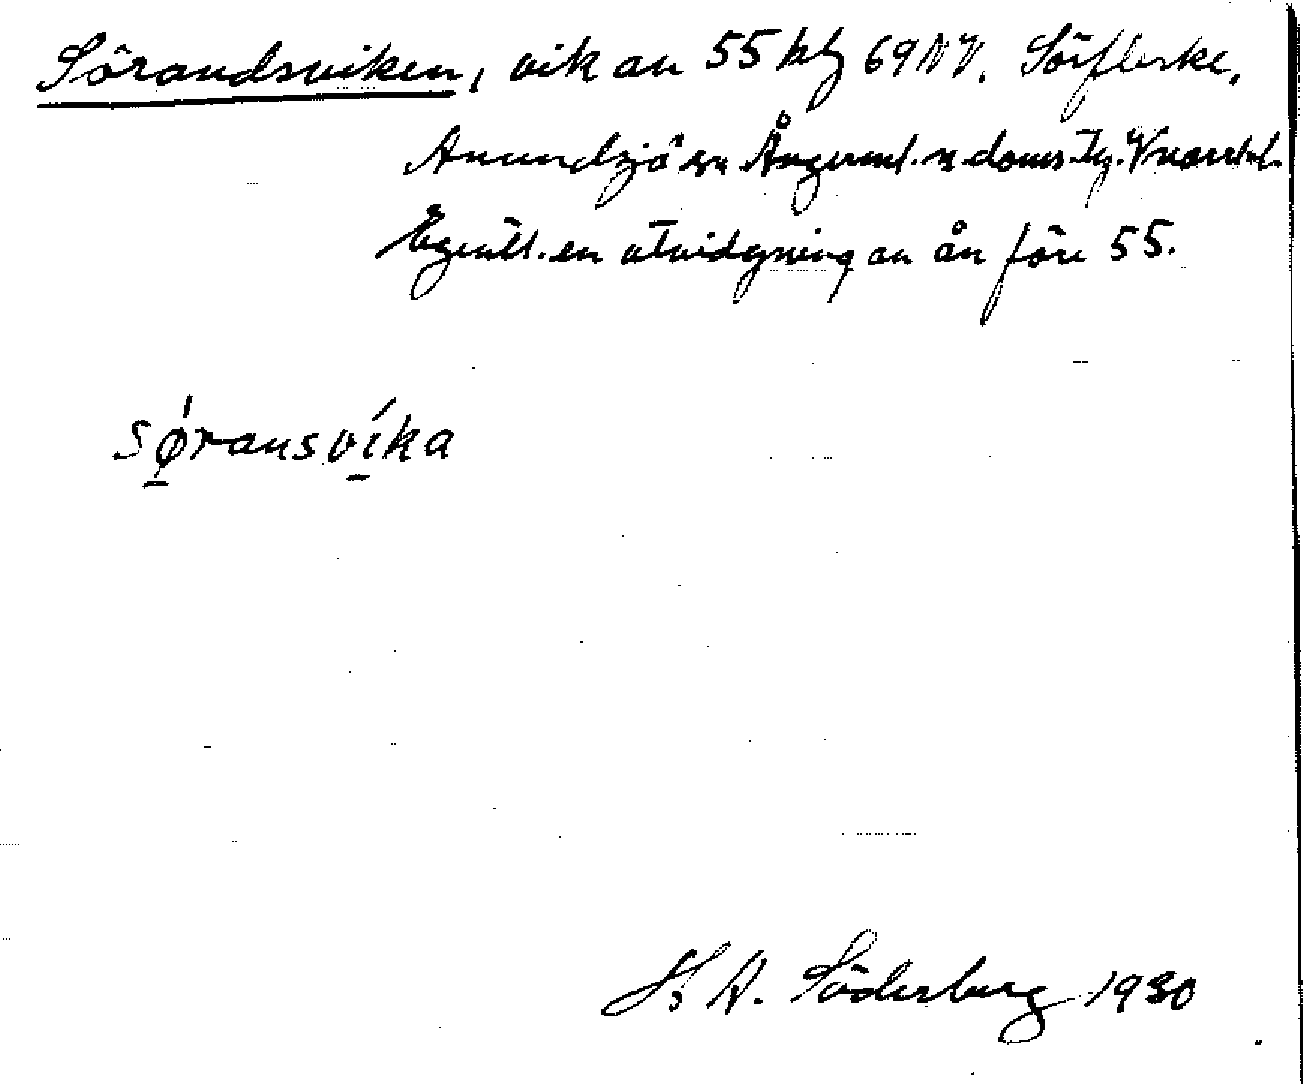 Sörandsviken, vik av 55 kbl 69 NV. Sörflärke,
Anundsjö sn Ångerml. n doms. Tg. V.norrl. l.
Egentl. en utvidgning av ån före 55.
sǿransvíka
H A. Söderberg 1930